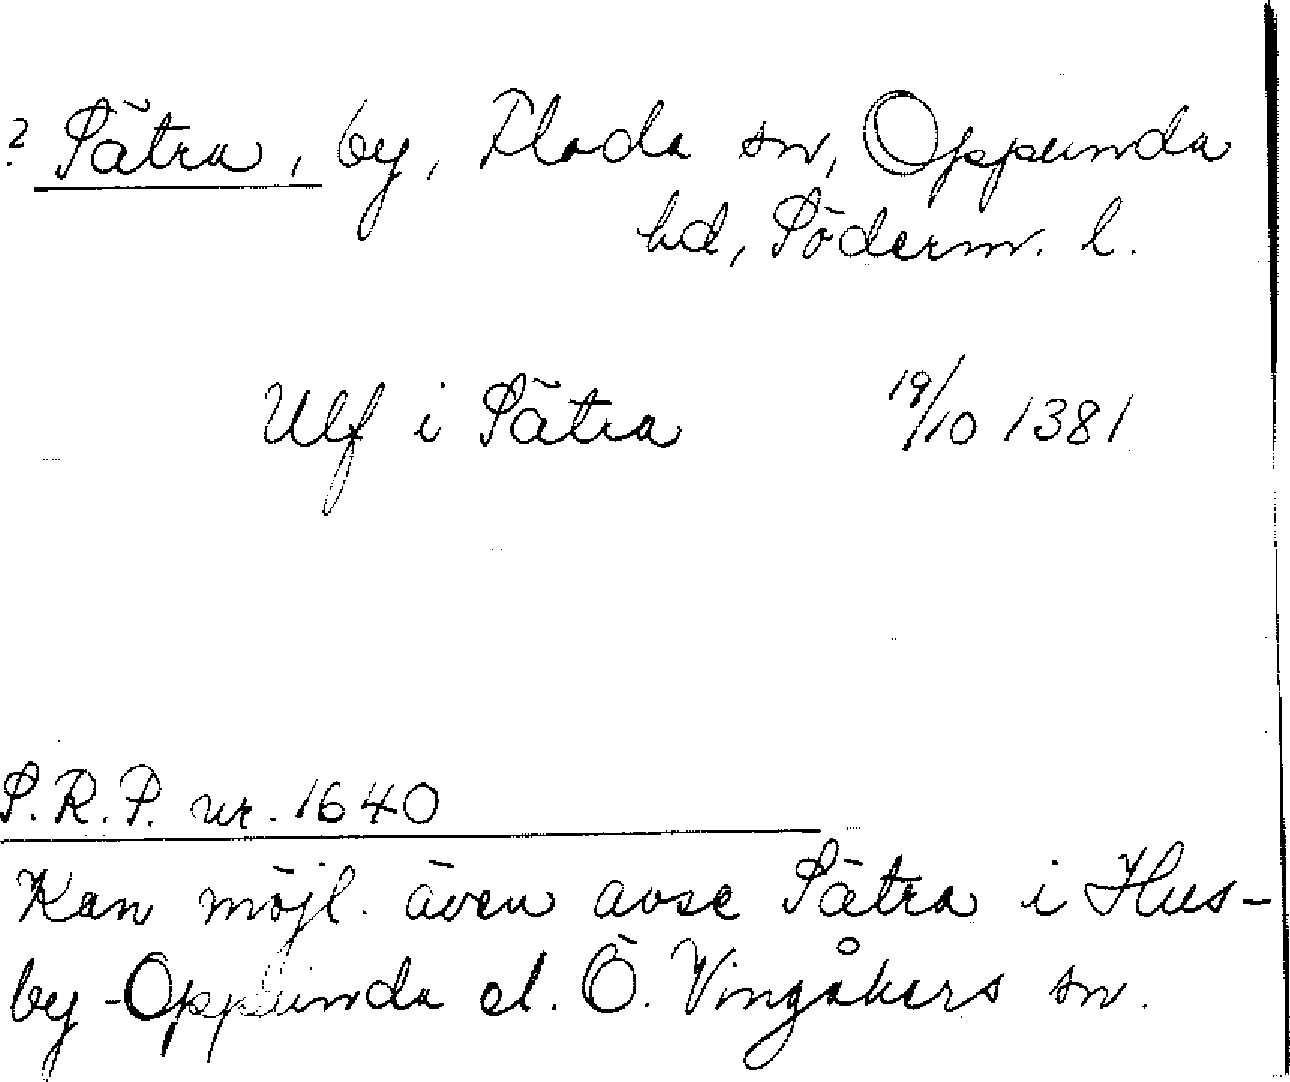 ? Sätra, by, Floda sn, Oppunda
hd, Söderm. l.
Ulf i Sätra 19/10 1381
S.R.P. nr. 1640
Kan möjl. även avse Sätra i Hus-
by-Oppunda el. Ö. Vingåkers sn.